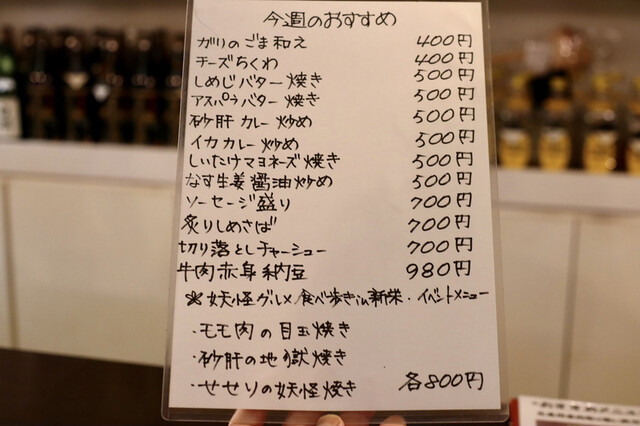 今週のおすすめ
ガリのごま和え 400円
チーズちくわ 400円
しめじバター焼き 500円
アスパラバター焼き 500円
砂肝カレー炒め 500円
イカカレー炒め 500円
しいたけマヨネーズ焼き 500円
なす生姜醤油炒め 500円
ソーセージ盛り 700円
炙りしめさば 700円
切り落としチャーシュー 700円
牛肉赤身納豆 980円
※妖怪グルメ食べ歩きin新栄・イベントメニュー
・モモ肉の目玉焼き
・砂肝の地獄焼き
・せせりの妖怪焼き 各800円